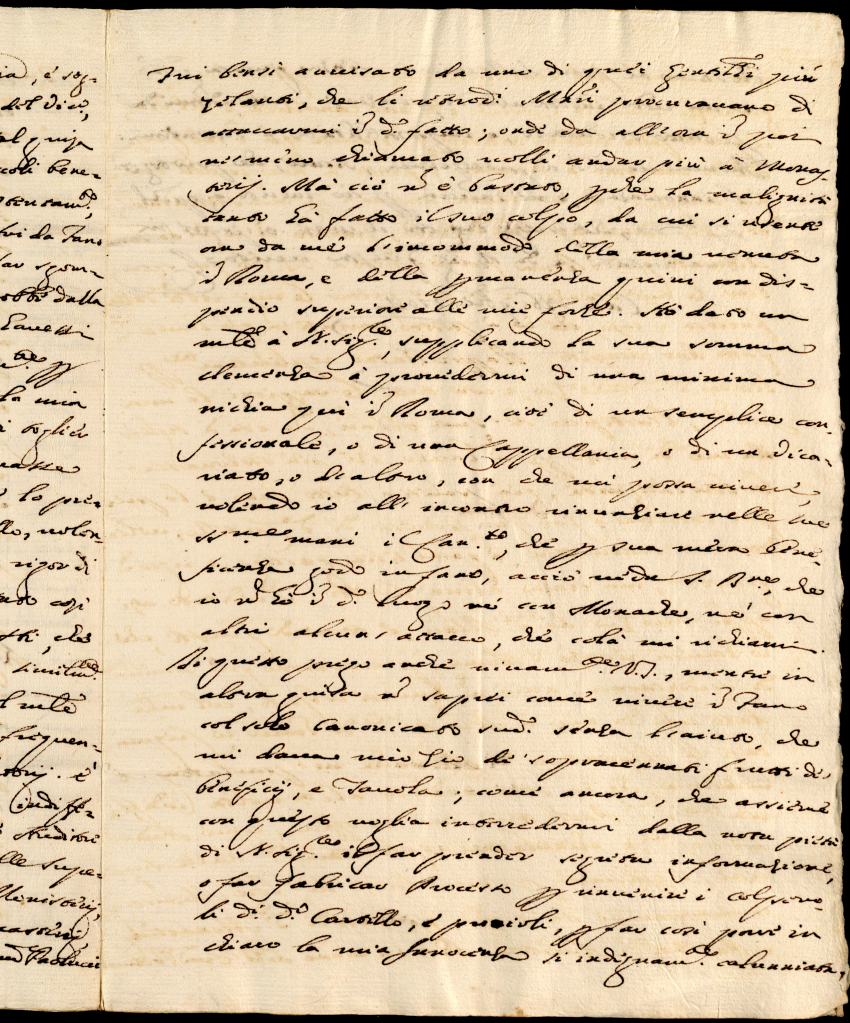 ia, e sog-
del Vic.o,
al quija
coli bene-
tui da Fano
far sgom-
ebbi dalla
Zanetti
la mia
i toglier
lo pre-
llo, volon-
rigor di
così
tti, che
similm.te
l mle
frequen-
è
indiffe-
lle supe-
Monisterj,
Paolucci
Fui bensì avvisato da uno di quei più
zelanti, che li retrod.i procuravano di
attaccarmi in d.o fatto; onde da allora in poi
ne meno chiamato volli andar più à Monas-
terij. Mà ciò nō è bastato, pche la malignità
tanto hà fatto il suo colpo, da cui si risente
ora da mè l'incommodo della mia venuta
in Roma, e della pmanenza quivi con dis-
pendio superiore alle mie forze. Hò dato un
mle à N. Sig.re, supplicando la sua somma
clemenza à provedermi di una minima
nichia quì in Roma, cioè di un semplice con-
fessionale, o di una Cappellania, o di un Vica-
riato, o di altro, con che mi possa vivere,
volendo io all'incontro rinunziare nelle sue
ss.me mani il Can.to, che p sua mera bene-
ficenza godo in Fano, acciò veda S. B.ne, che
io nō hò in d.o luogo nè con Monache, nè con
altri alcun'attacco, che colà mi richiami.
Di questo prego anche vivam.te V.S., mentre in
altra guisa nō saprei come vivere in Fano
col solo Canonicato sud.o senza l'aiuto, che
mi dava mio Zio de' sopracennati frutti de'
beneficij, e Tavola; come ancora, che assieme
con questo voglia intercedermi dalla nota pietà
di N. Sig.re il far prender segreta informazione,
o far fabricar Processo p rinvenire i colpevo-
li di d.o Cartello, e pricoli, p far così porre in
chiaro la mia Innocenza sì indegnam.te calunniata,